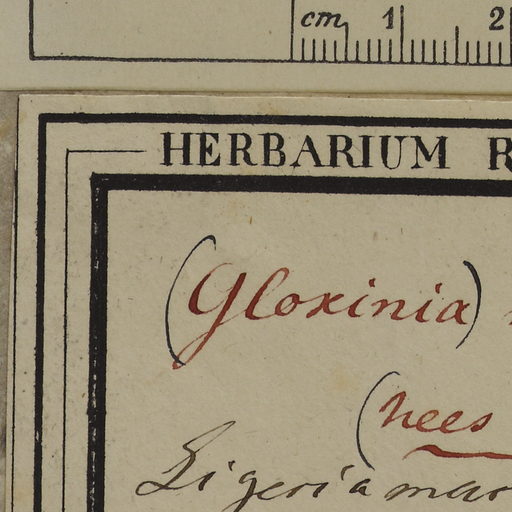 cm 1 2
HERBARIUM R
(Gloxinia)
(nees
Ligeria mar